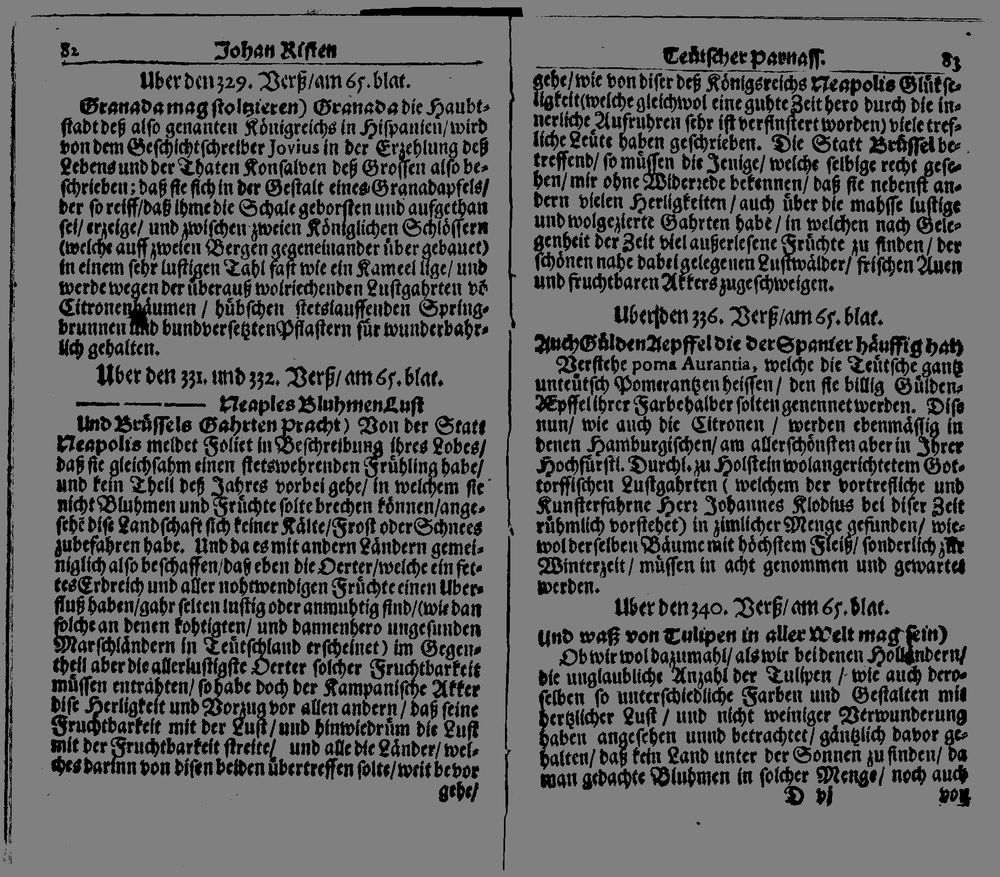 82 Johan Risten
Uber den 329. Verß/am 65. blat.
Granada mag stoltzieren) Granada die Haubt-
stadt deß also genanten Königreichs in Hispanien/wird
von dem Geschichtschreiber Jovius in der Erzehlung deß
Lebens und der Thaten Konsalven des Grossen also be-
schrieben; daß sie sich in der Gestalt eines Granadapfels/
der so reiff/daß ihme die Schale geborsten und aufgethan
sei/erzeige/ und zwischen zweien Königlichen Schlössern
(welche auff zweien Bergen gegeneinander über gebauet)
in einem sehr lustigen Tahl fast wie ein Kameel lige/ und
werde wegen der überauß wolriechenden Lustgahrten võ
Citronenbäumen / hübschen stetslauffenden Spring-
brunnen und bundversetzten Pflastern für wunderbahr-
lich gehalten.
Uber den 331. und 332. Verß/am 65. blat.
Neaples Bluhmen Lust
Und Brüssels Gahrten pracht) Von der Statt
Neapolis meldet Foliet in Beschreibung ihres Lobes/
daß sie gleichsahm einen stetswehrenden Frühling habe/
und kein Theil deß Jahres vorbei gehe/ in welchem sie
nicht Bluhmen und Früchte solte brechen können/ange-
sehẽ dise Landschaft sich keiner Kälte/Frost oder Schnees
zubefahren habe. Und da es mit andern Ländern gemei-
niglich also beschaffen/daß eben die Oerter/welche ein fet-
tes Erdreich und aller nohtwendigen Früchte einen Uber-
fluß haben/gahr selten lustig oder anmuhtig sind/(wie dan
solche an denen kohtigten/ und dannenhero ungesunden
Marschländern in Teütschland erscheinet) im Gegen-
theil aber die allerlustigste Oerter solcher Fruchtbarkeit
müssen enträhten/so habe doch der Kampanische Akker
dise Herligkeit und Vorzug vor allen andern/ daß seine
Fruchtbarkeit mit der Lust/und hinwiedrüm die Lust
mit der Fruchtbarkeit streite/ und alle die Länder/ wel-
ches darinn von disen beiden übertreffen solte/weit bevor
gehe/
Teütscher Parnass. 83
gehe/wie von diser deß Königsreichs Neapolis Glükse-
ligkeit(welche gleichwol eine guhte Zeit hero durch die in-
nerliche Aufruhren sehr ist verfinstert worden) viele tref-
liche Leüte haben geschrieben. Die Statt Brüssel be-
treffend/ so müssen die Jenige/ welche selbige recht gese-
hen/mir ohne Widerrede bekennen/ daß sie nebenst an-
dern vielen Herligkeiten/ auch über die mahsse lustige
und wolgezierte Gahrten habe/ in welchen nach Gele-
genheit der Zeit viel außerlesene Früchte zu finden/ der
schönen nahe dabei gelegenen Lustwälder/ frischen Auen
und fruchtbaren Akkers zugeschweigen.
Uber den 336. Verß/am 65. blat.
Auch Gülden Aepffel die der Spanier häuffig hat)
Verstehe poma Aurantia, welche die Teütsche gantz
unteütsch Pomerantzen heissen/ den sie billig Gülden-
Æpffel ihrer Farbe halber solten genennet werden. Dise
nun/ wie auch die Citronen / werden ebenmässig in
denen Hamburgischen/am allerschönsten aber in Ihrer
Hochfürstl. Durchl. zu Holstein wolangerichtetem Got-
torffischen Lustgahrten ( welchem der vortrefliche und
Kunsterfahrne Herr Johannes Klodius bei diser Zeit
rühmlich vorstehet) in zimlicher Menge gefunden/ wie-
wol derselben Bäume mit höchstem Fleiß/ sonderlich zur
Winterzeit/ müssen in acht genommen und gewartet
werden.
Uber den 340. Verß/am 65. blat.
Und waß von Tulipen in aller Welt mag sein)
Ob wir wol dazumahl/als wir bei denen Holländern/
die unglaubliche Anzahl der Tulipen/ wie auch dero-
selben so unterschiedliche Farben und Gestalten mit
hertzlicher Lust / und nicht weiniger Verwunderung
haben angesehen unnd betrachtet/ gäntzlich davor ge-
halten/ daß kein Land unter der Sonnen zu finden/ da
man gedachte Bluhmen in solcher Menge/ noch auch
D vj von